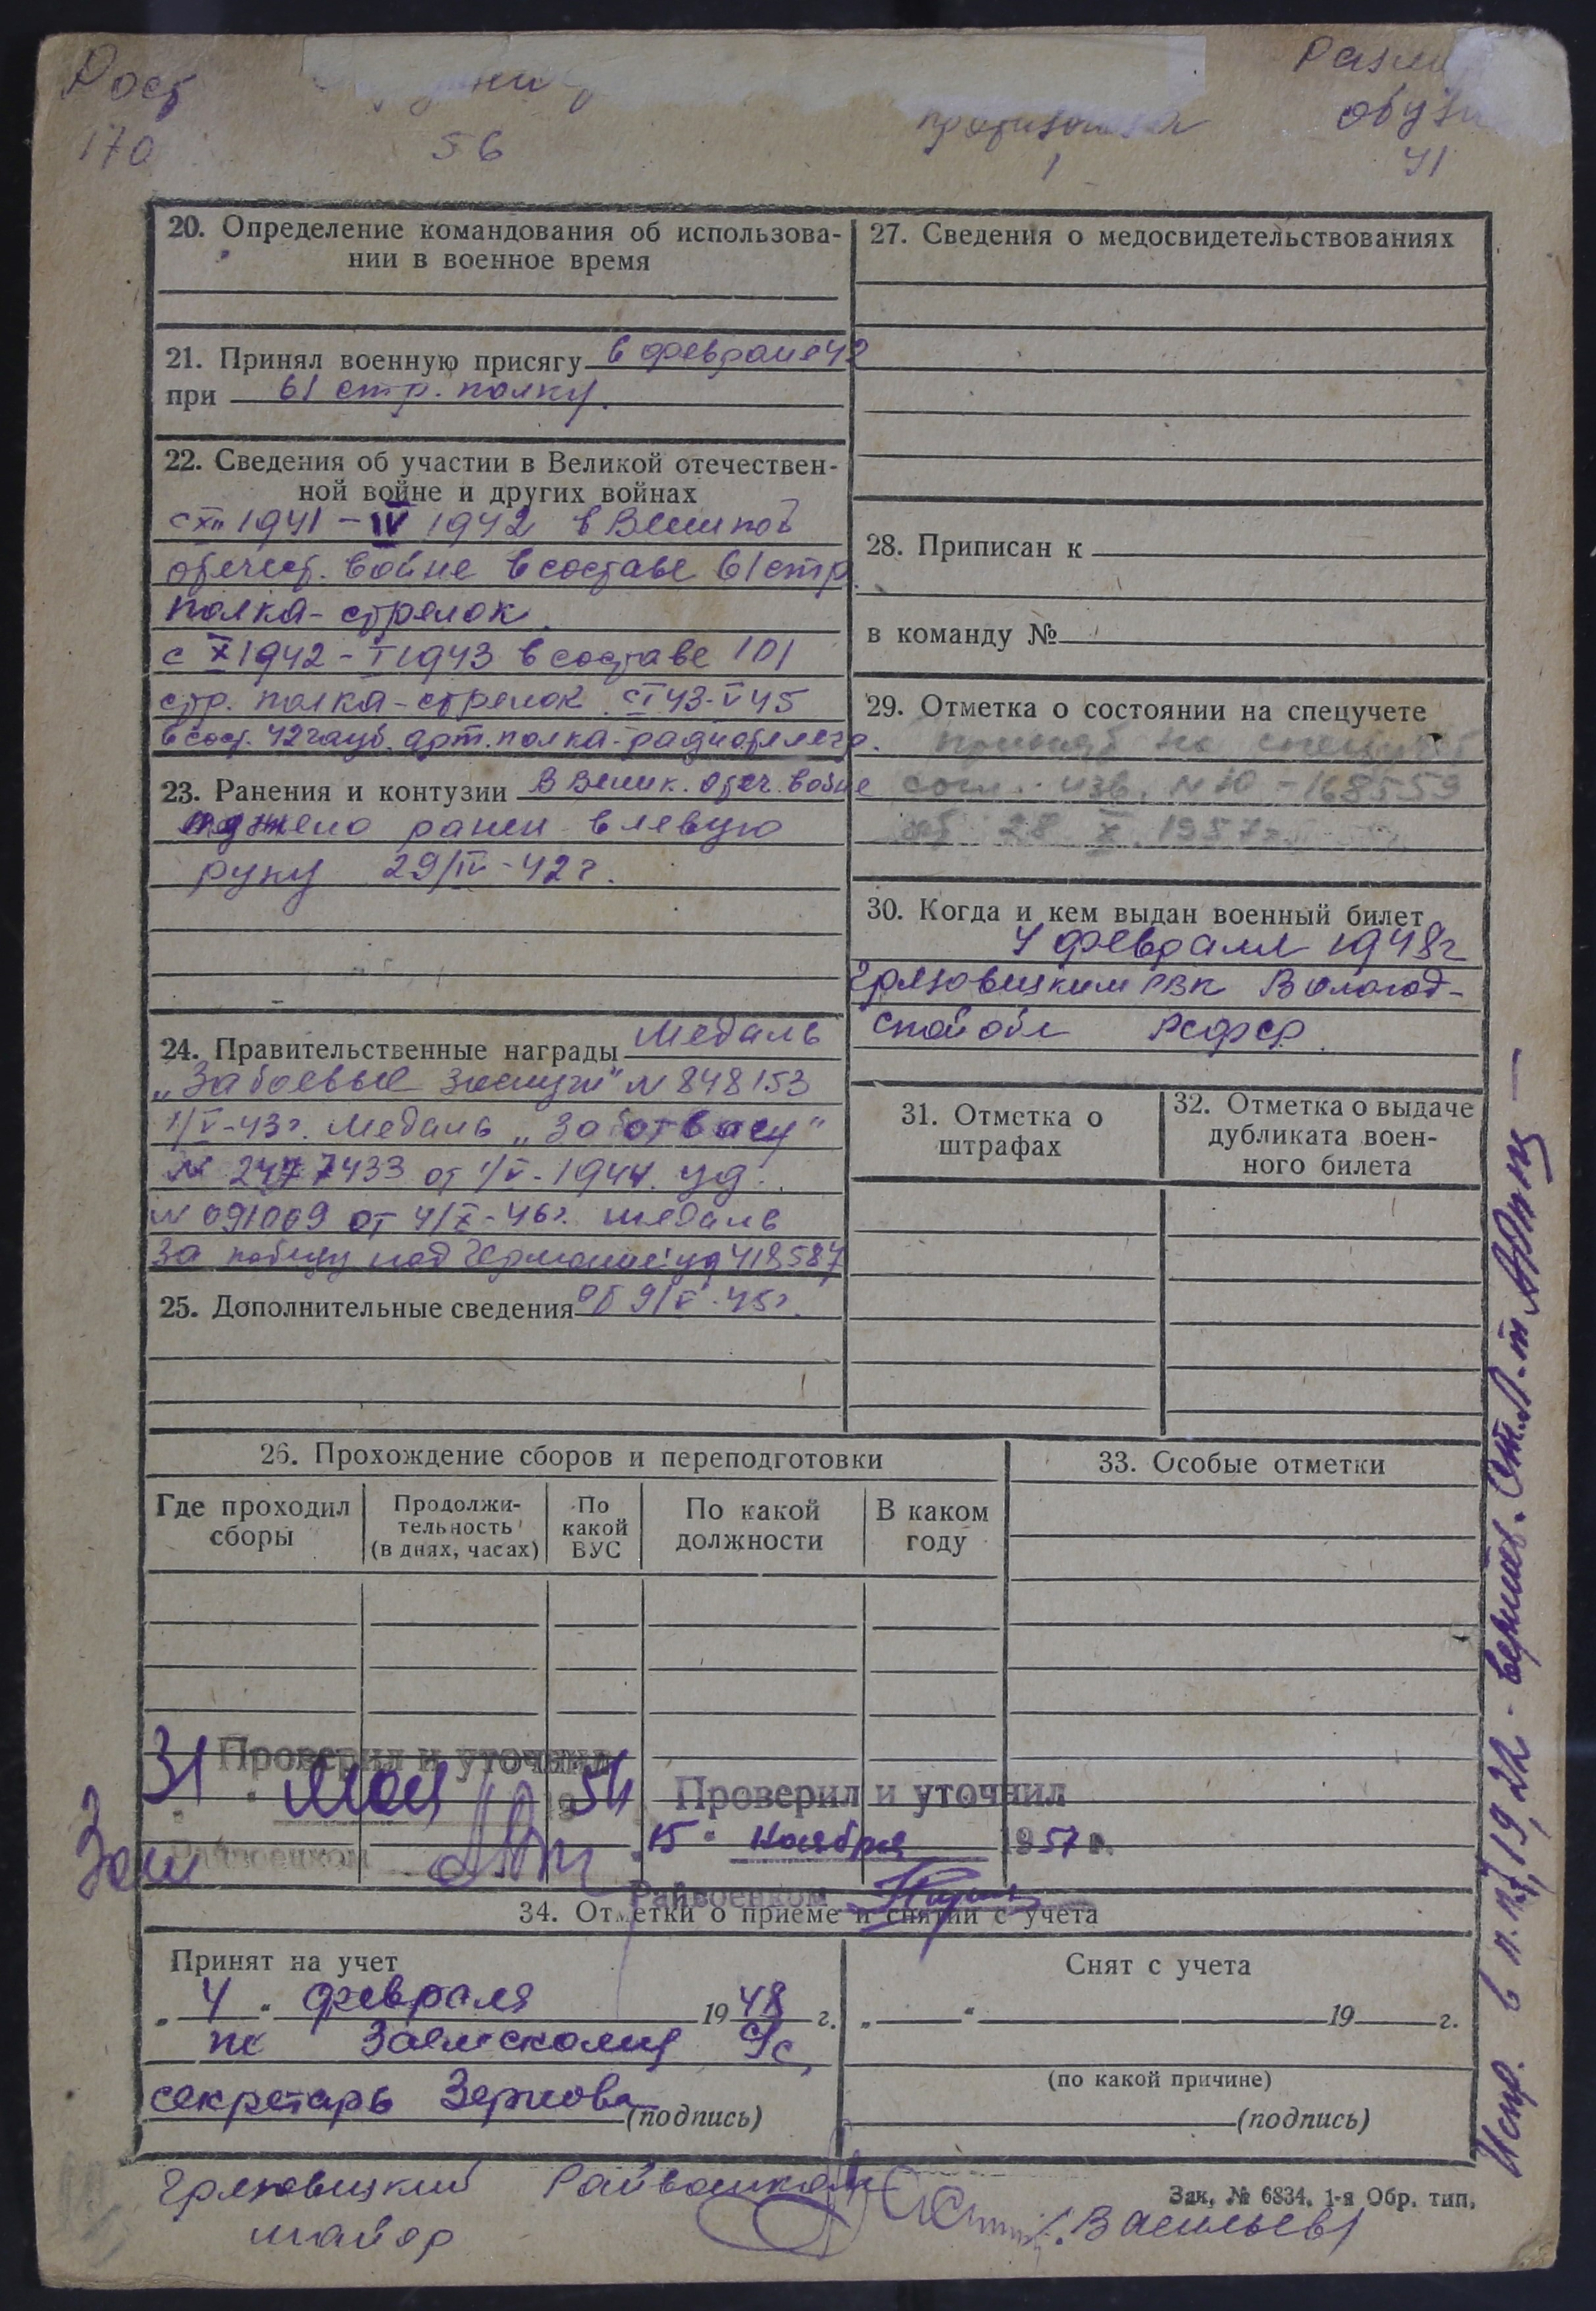 Рост
170
56
противогаза
1
Разм
обуви
41
20. Определение командования об использова-
нии в военное время
21. Принял военную присягу в феврале 42
при 61 стр. полку.
22. Сведения об участии в Великой отечествен-
ной войне и других войнах
с XII 1941 – IV 1942 в Великой
отечест. войне в составе 61 стр.
полка - стрелок.
с X 1942 – I 1943 в составе 101
стр. полка - стрелок. с I 43 - V 45
в сост. 42 гауб. арт. полка - радиотелегр.
23. Ранения и контузии В Велик. отеч. войне
ранен в левую
руку 29/IV - 42 г.
24. Правительственные награды Медаль
„За боевые заслуги" N 848153
1/V - 43 г. Медаль „За отвагу"
N 2477433 от 1/V - 1944. уд.
N 091009 от 4/X - 46 г. медаль
За победу над Германией уд 418587
25. Дополнительные сведения от 9/V - 45 г.
27. Сведения о медосвидетельствованиях
28. Приписан к
в команду №
29. Отметка о состоянии на спецучете
принят на спецучет
согл. изв. N 10 - 168559
от 28 X 1957 г.
30. Когда и кем выдан военный билет
4 февраля 1948 г
Грязовецким РВК Вологод-
ской обл РСФСР.
31. Отметка о
штрафах
32. Отметка о выдаче
дубликата воен-
ного билета
26. Прохождение сборов и переподготовки
Где проходил
сборы
Продолжи-
тельность
(в днях, часах)
По
какой
ВУС
По какой
должности
В каком
году
33. Особые отметки
Проверил и уточнил
31 " мая 1954
Зам Райвоенком
Проверил и уточнил
"15" ноября 1957 г.
Райвоенком
34. Отметки о приеме и снятии с учета
Принят на учет
„4" февраля 1948 г.
по Заемскому с/с,
секретарь Зернова
(подпись)
Снят с учета
„ " 19 г.
(по какой причине)
(подпись)
Грязовецкий Райвоенком
майор /Васильев/
Зак. № 6834. 1-я Обр. тип.
Испр. в п.п. 7, 19, 22 - верить. Ст. Л-т